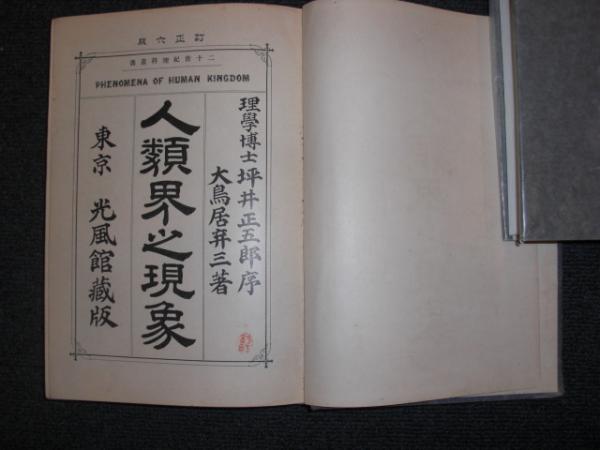 訂正六版
二十世紀理科叢書
PHENOMENA OF HUMAN KINGDOM
理學博士坪井正五郎序
大鳥居弃三著
人類界之現象
東京 光風館藏版